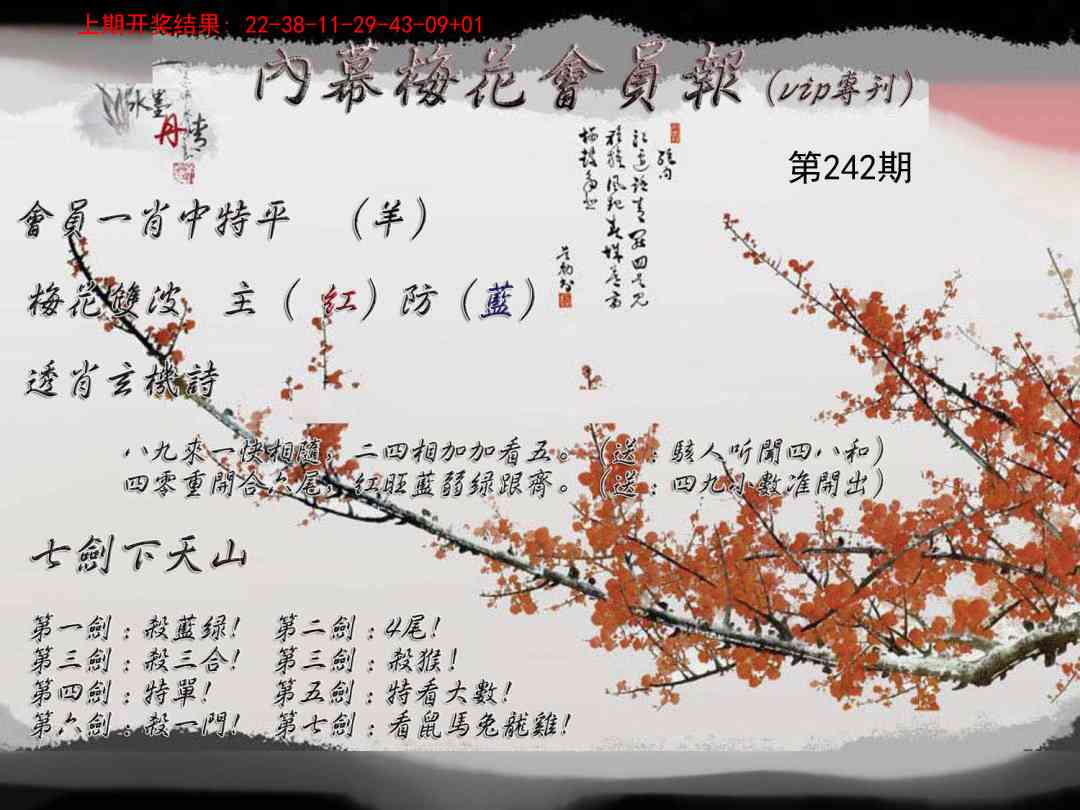 上期开奖结果: 22-38-11-29-43-09+01
內幕梅花會員報(vip專刊)
水墨
丹青
第242期
會員一肖中特平 (羊)
梅花雙波 主(紅)防(藍)
透肖玄機詩
八九來一快相隨,二四相加加看五。(送:駭人听聞四八和)
四零重開合六尾,紅旺藍弱绿跟齊。(送:四九小數准開出)
七劍下天山
第一劍:殺藍绿! 第二劍:4尾!
第三劍:殺三合! 第三劍:殺猴!
第四劍:特單! 第五劍:特看大數!
第六劍:殺一門! 第七劍:看鼠馬兔龍雞!